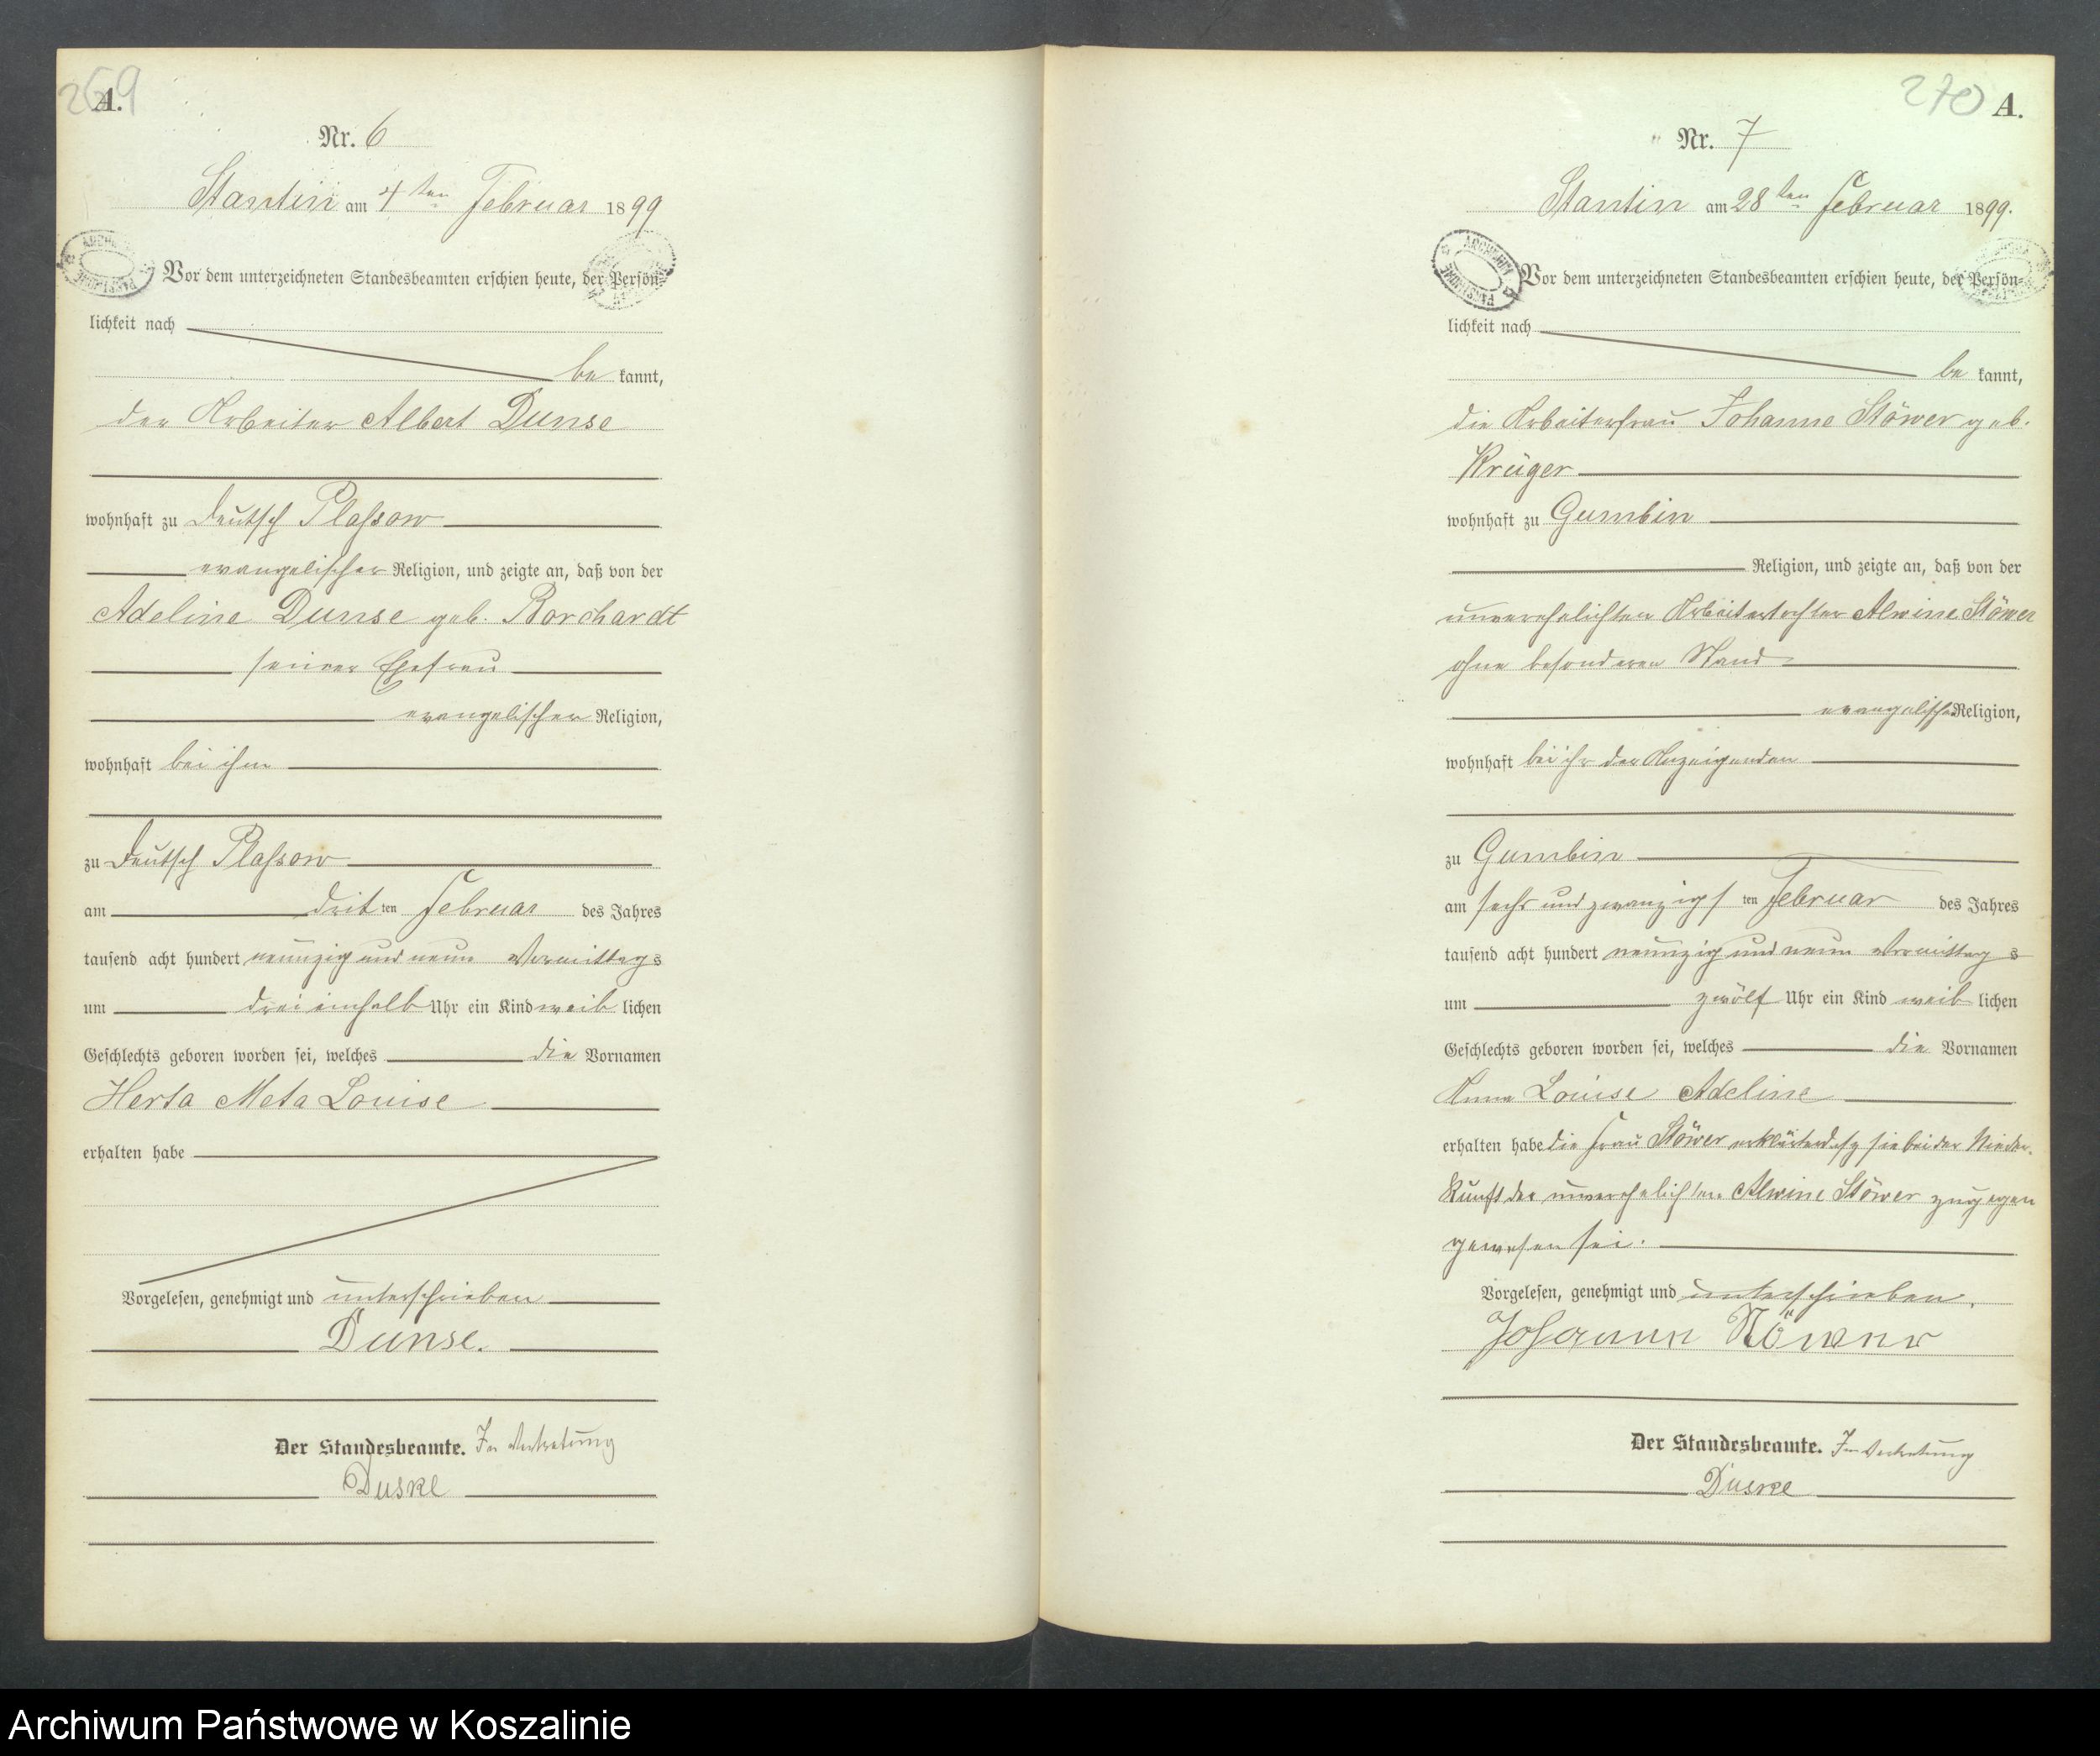 269
A.
Nr. 6
Stantin am 4ten Februar 1899
Vor dem unterzeichneten Standesbeamten erschien heute, der Persön-
lichkeit nach
be kannt,
der Arbeiter Albert Dunse
wohnhaft zu Deutsch Plassow
evangelischer Religion, und zeigte an, daß von der
Adeline Dunse geb. Borchardt
seiner Ehefrau
evangelischer Religion,
wohnhaft bei ihm
zu Deutsch Plassow
am drit ten Februar des Jahres
tausend acht hundert neunzig und neun Vormittags
um drei einhalb Uhr ein Kind weib lichen
Geschlechts geboren worden sei, welches die Vornamen
Herta Meta Louise
erhalten habe
Vorgelesen, genehmigt und unterschrieben
Dunse.
Der Standesbeamte. In Vertretung
Duske
270
A.
Nr. 7
Stantin am 28ten Februar 1899.
Vor dem unterzeichneten Standesbeamten erschien heute, der Persön-
lichkeit nach
be kannt,
die Arbeiterfrau Johanne Stöwer geb.
Krüger
wohnhaft zu Gumbin
Religion, und zeigte an, daß von der
unverehelichten Arbeitertochter Alwine Stöwer
ohne besonderen Stand
evangelischer Religion,
wohnhaft bei ihr der Anzeigenden
zu Gumbin
am sechs und zwanzigs ten Februar des Jahres
tausend acht hundert neunzig und neun Vormittags
um zwölf Uhr ein Kind weib lichen
Geschlechts geboren worden sei, welches die Vornamen
Anna Louise Adeline
erhalten habe die Frau Stöwer erklärte daß sie bei der Nieder-
kunft der unverehelichten Alwine Stöwer zugegen
gewesen sei.
Vorgelesen, genehmigt und unterschrieben.
Johanne Stöwer
Der Standesbeamte. In Vertretung
Duske
Archiwum Państwowe w Koszalinie